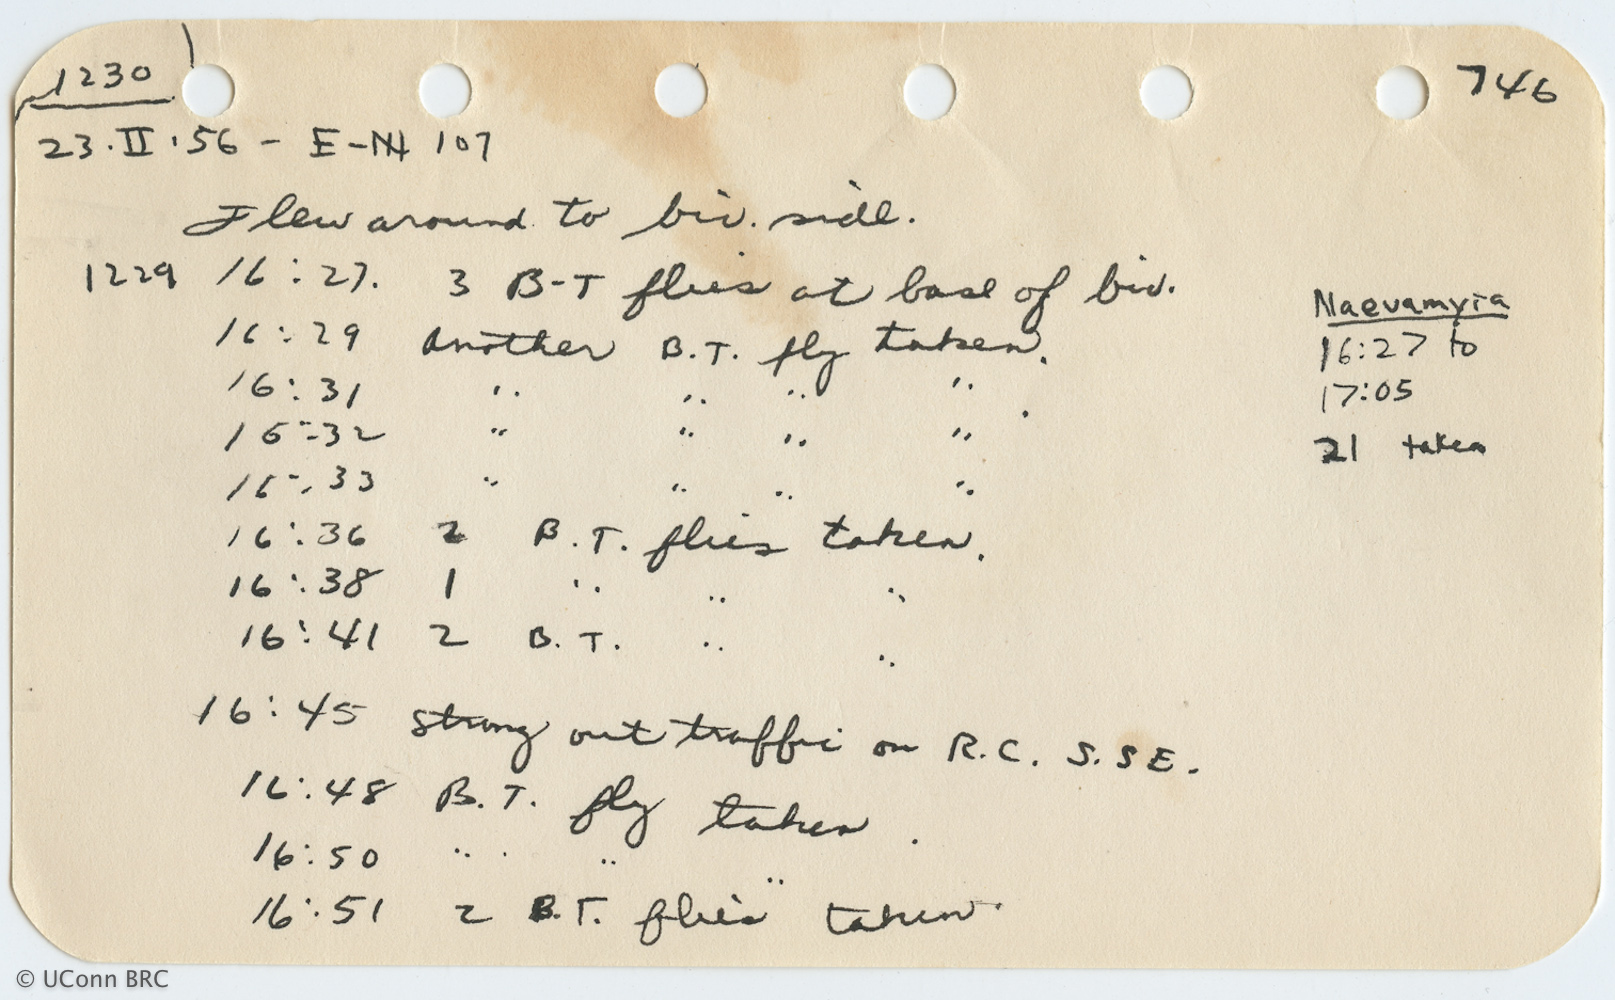 1230
746
23.II.56 - E-NH 107
Flew around to biv. side.
1229 16:27. 3 B-T flies at base of biv.
16:29 Another B.T. fly taken.
16:31 " " " " .
16:32 " " " "
16:33 " " " "
16:36 2 B.T. flies taken.
16:38 1 " " "
16:41 2 B.T. " "
16:45 strong out traffic on R.C. S.SE.
16:48 B.T. fly taken.
16:50 " " "
16:51 2 B.T. flies taken.
Naevamyia
16:27 to
17:05
21 taken
© UConn BRC